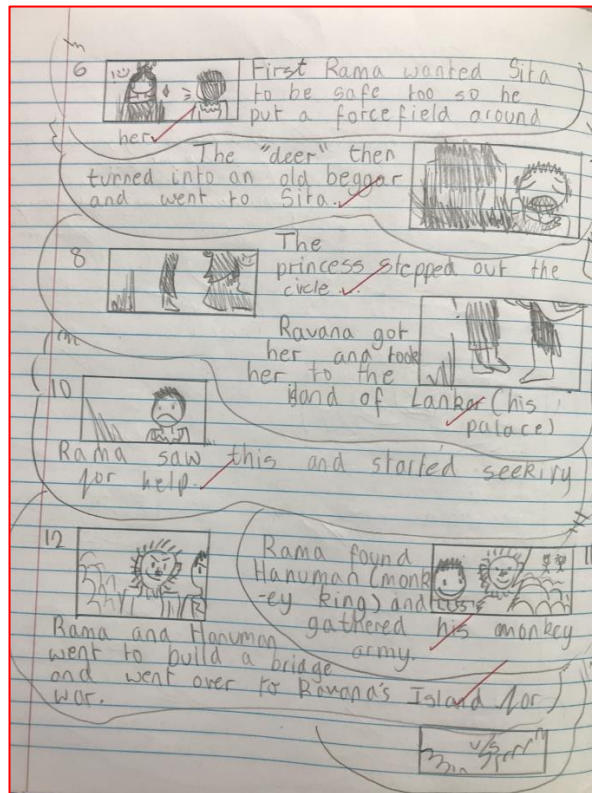 6
First Rama wanted Sita
to be safe too so he
put a forcefield around
her.
The "deer" then
turned into an old beggar
and went to Sita.
8
The
princess stepped out the
circle.
Ravana got
her and took
her to the
island of Lanka (his
palace)
10
Rama saw this and started seeking
for help.
12
Rama found
Hanuman (monk
-ey king) and
gathered his monkey
army.
Rama and Hanuman
went to build a bridge
and went over to Ravana's Island for
war.